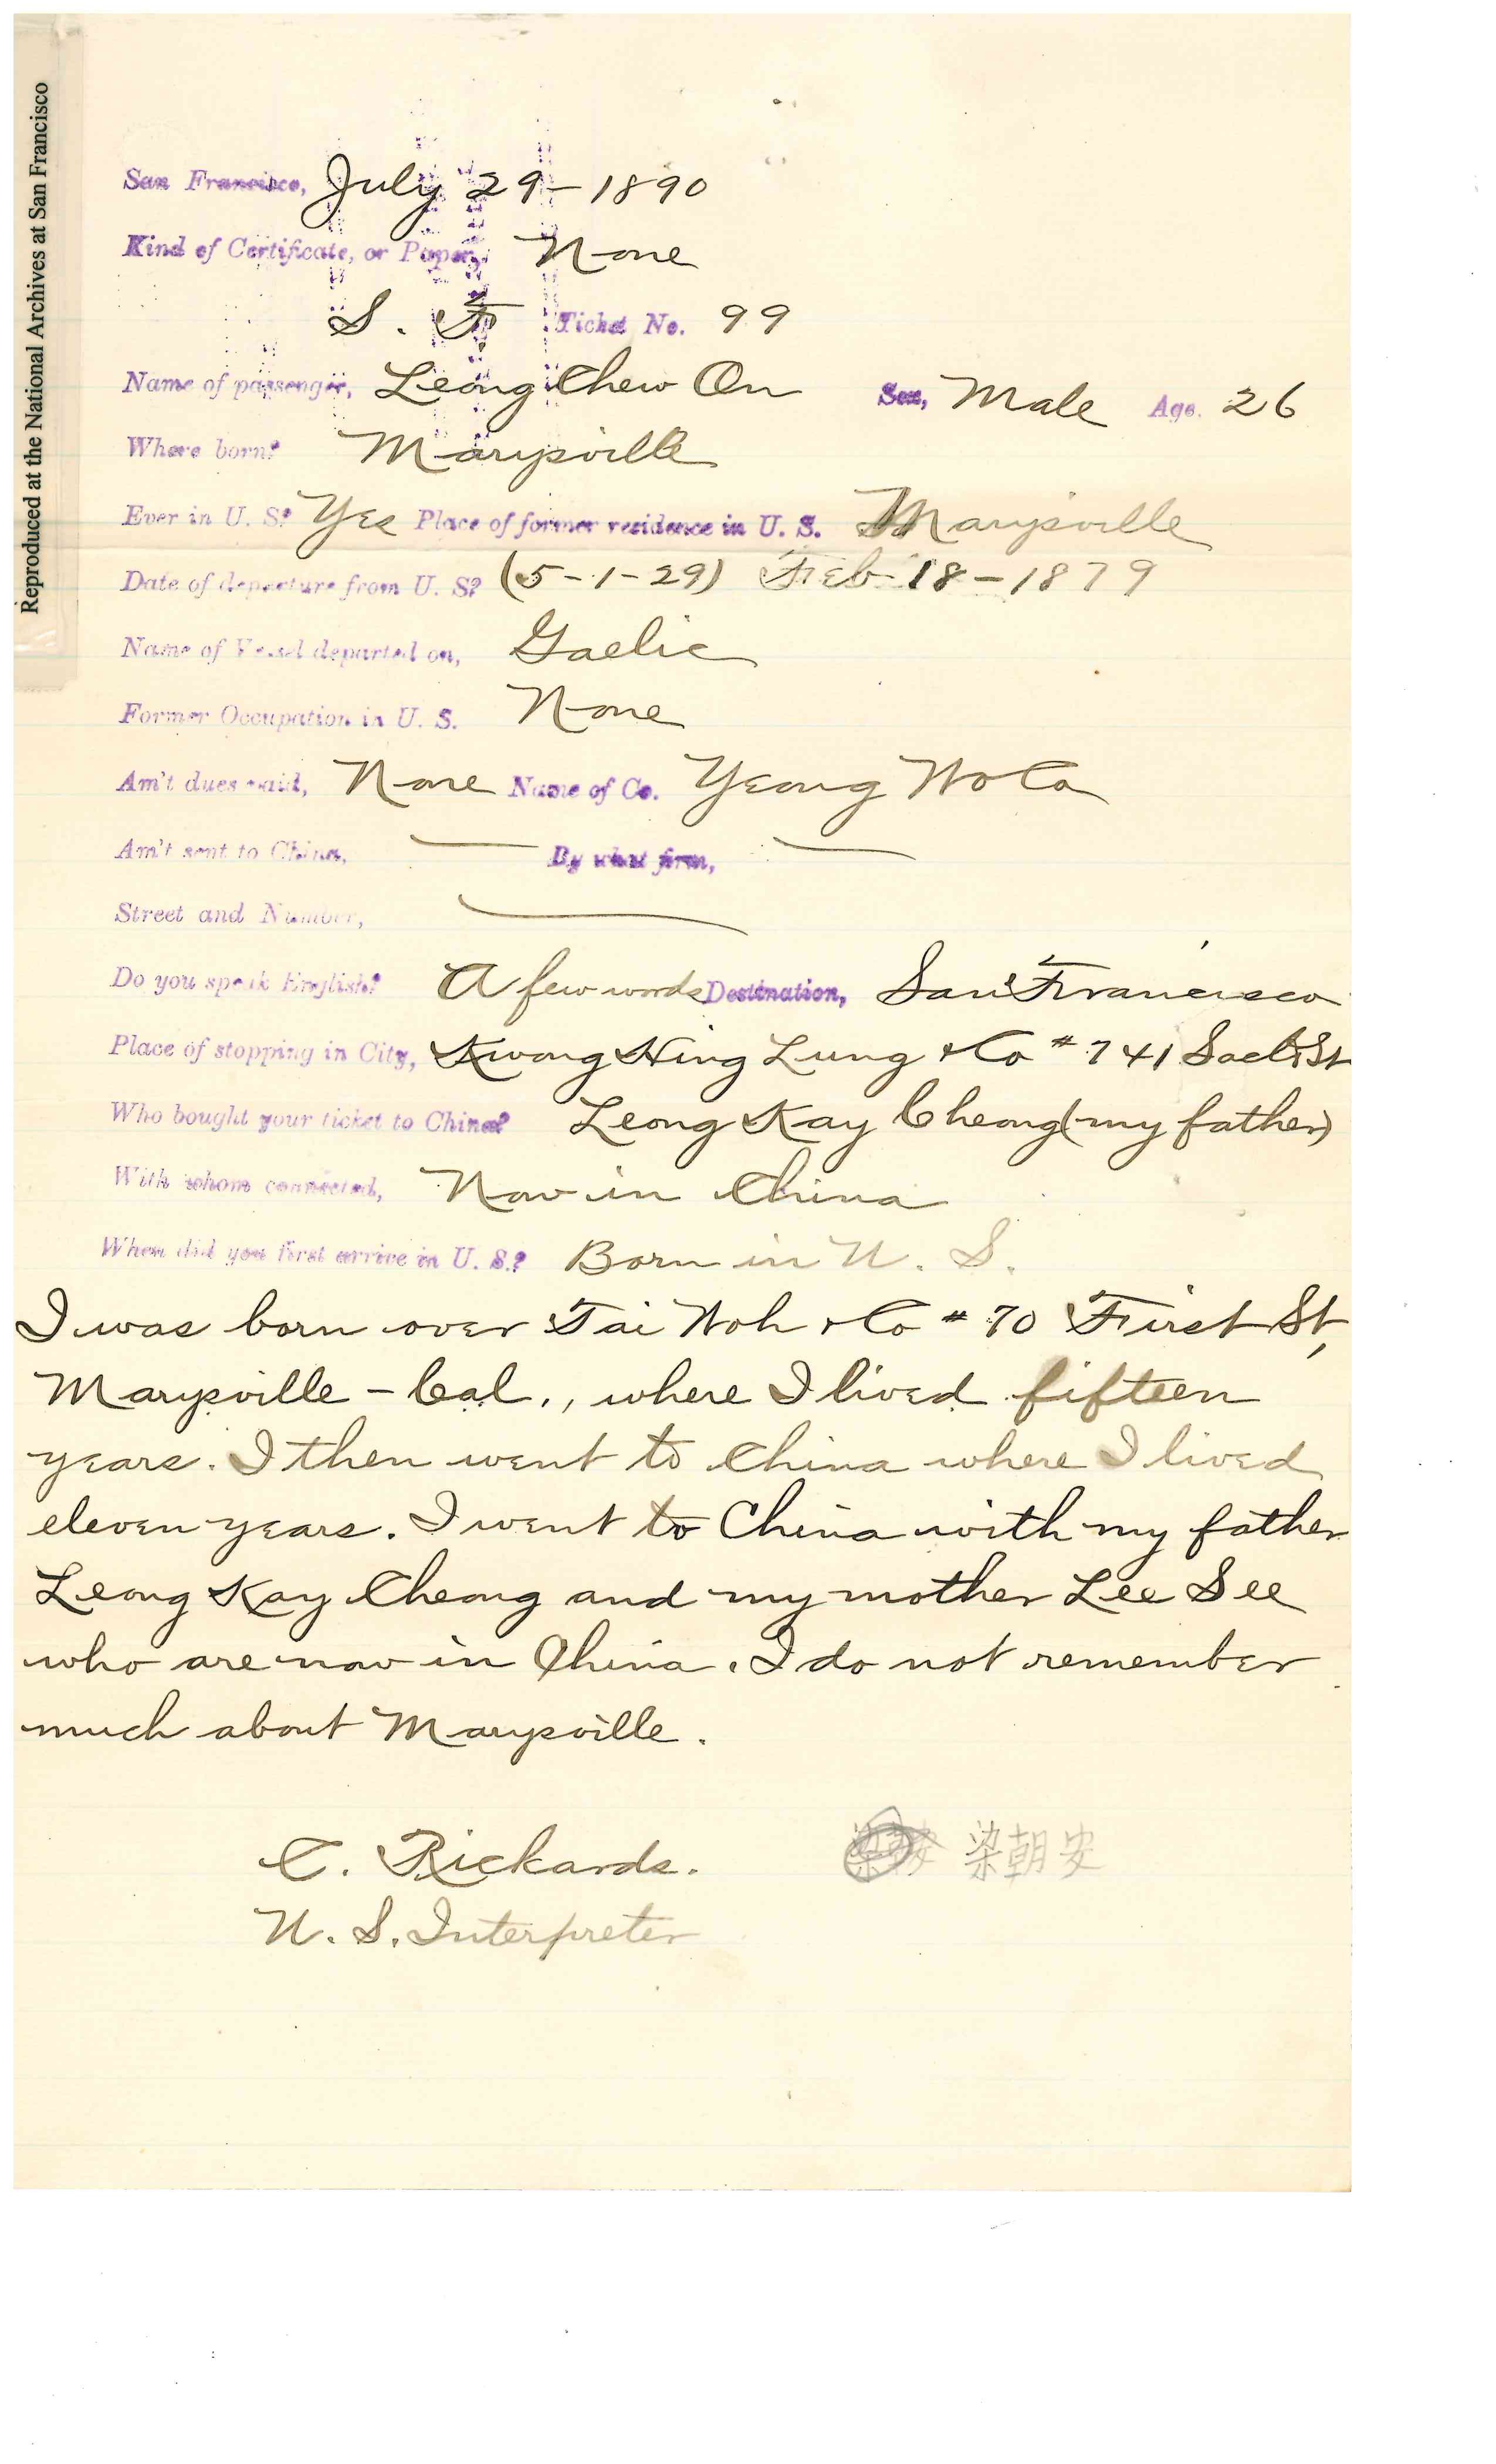 Reproduced at the National Archives at San Francisco
San Francisco, July 29 - 1890
Kind of Certificate, or Paper, None
S. F. Ticket No. 99
Name of passenger, Leong Chew On Sex, Male Age. 26
Where born? Marysville
Ever in U. S? Yes Place of former residence in U. S. Marysville
Date of departure from U. S? (5-1-29) Feb 18 - 1879
Name of Vessel departed on, Gaelic
Former Occupation in U. S. None
Am't dues paid, None Name of Co. Yeong Wo Co
Am't sent to China, — By what firm, —
Street and Number, —
Do you speak English? A few words Destination, San Francisco
Place of stopping in City, Kwong Hing Lung & Co # 741 Sact St
Who bought your ticket to China? Leong Kay Cheong (my father)
With whom connected, Now in China
When did you first arrive in U. S.? Born in U. S.
I was born over Tai Woh & Co # 70 First St,
Marysville - Cal., where I lived fifteen
years. I then went to China where I lived
eleven years. I went to China with my father
Leong Kay Cheong and my mother Lee See
who are now in China. I do not remember
much about Marysville.
C. Rickards. 梁朝安
U. S. Interpreter